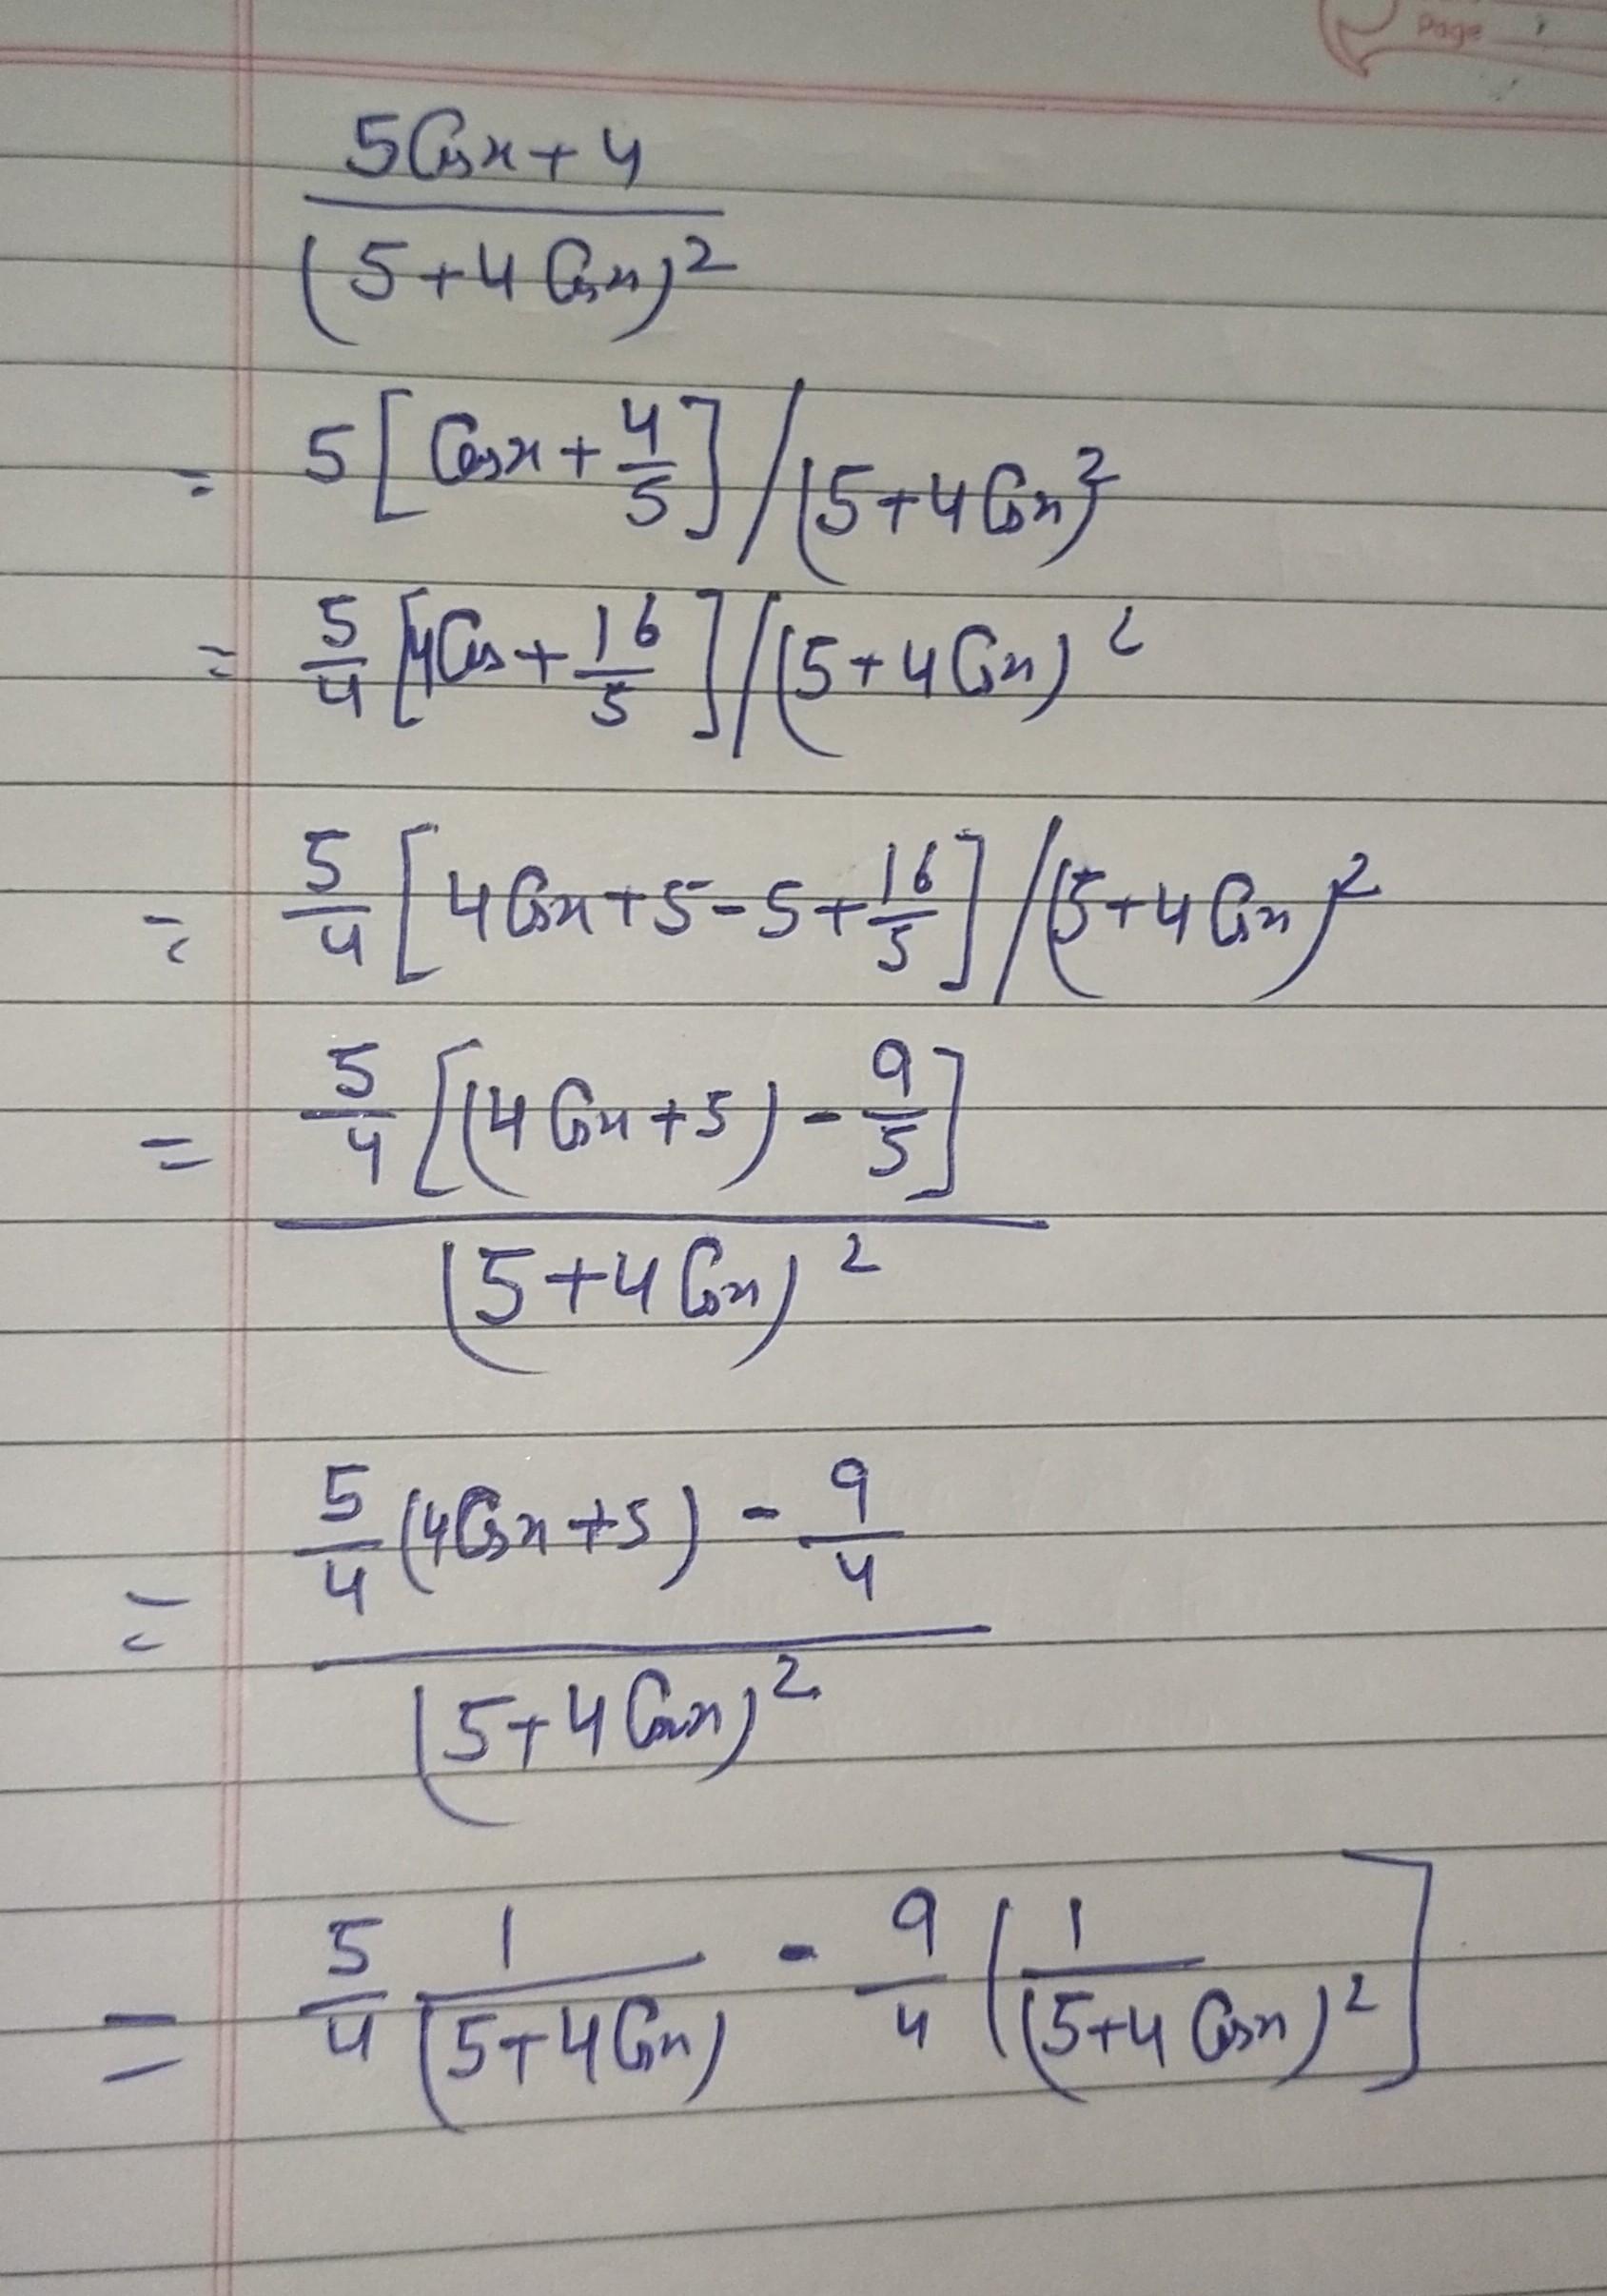 Page
5Cosx+4
(5+4Cosx)²
= 5[Cosx+4/5]/(5+4Cosx)²
= 5/4[4Cos+16/5]/(5+4Cosx)²
= 5/4[4Cosx+5-5+16/5]/(5+4Cosx)²
= 5/4[(4Cosx+5)-9/5]
(5+4Cosx)²
= 5/4(4Cosx+5)-9/4
(5+4Cosx)²
= 5/4 1/(5+4Cosx) - 9/4(1/(5+4Cosx)²]